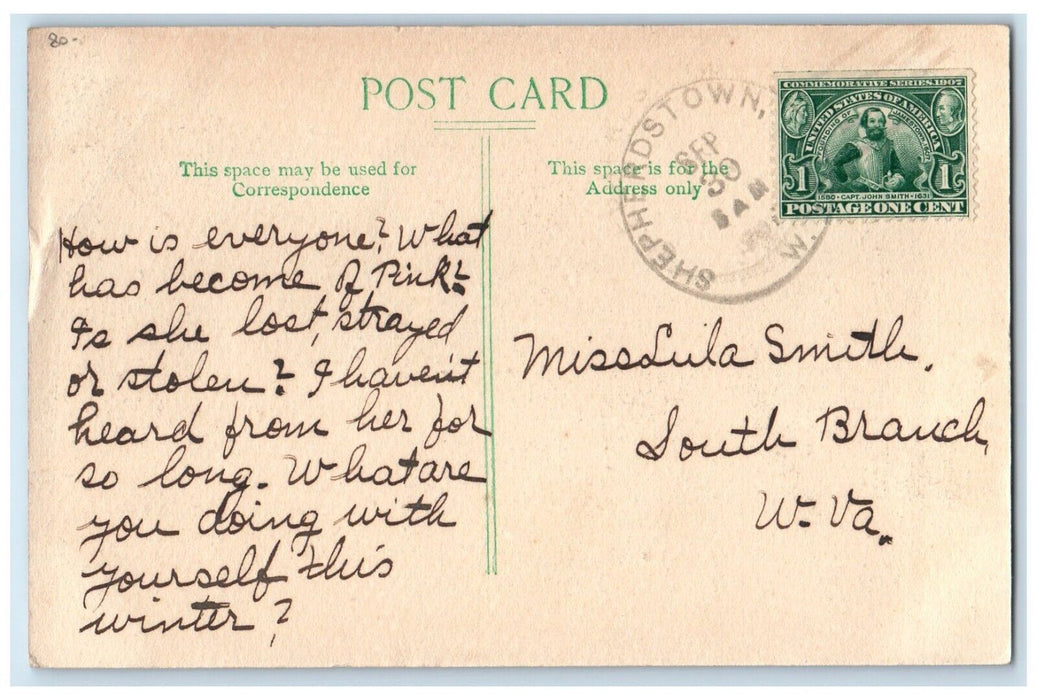 80-
POST CARD
This space may be used for
Correspondence
This space is for the
Address only
SHEPHERDSTOWN, W. VA.
SEP
30
AM
COMMEMORATIVE SERIES 1907
UNITED STATES OF AMERICA
FOUNDING OF JAMESTOWN
1 1
1580 · CAPT. JOHN SMITH · 1631
POSTAGE ONE CENT
How is everyone? What
has become of Pink?
Is she lost, strayed
or stolen? I haven't
heard from her for
so long. What are
you doing with
yourself this
winter?
Miss Lula Smith.
South Branch,
W. Va.